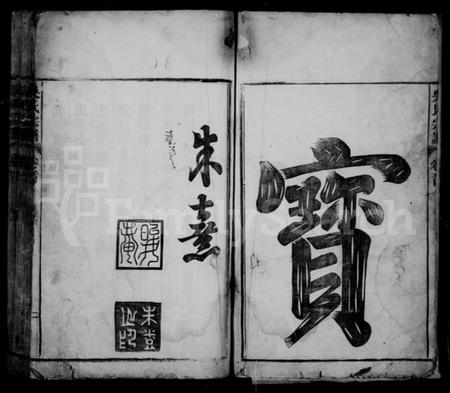 寶
朱熹
晦菴
朱熹之印
FamilySearch